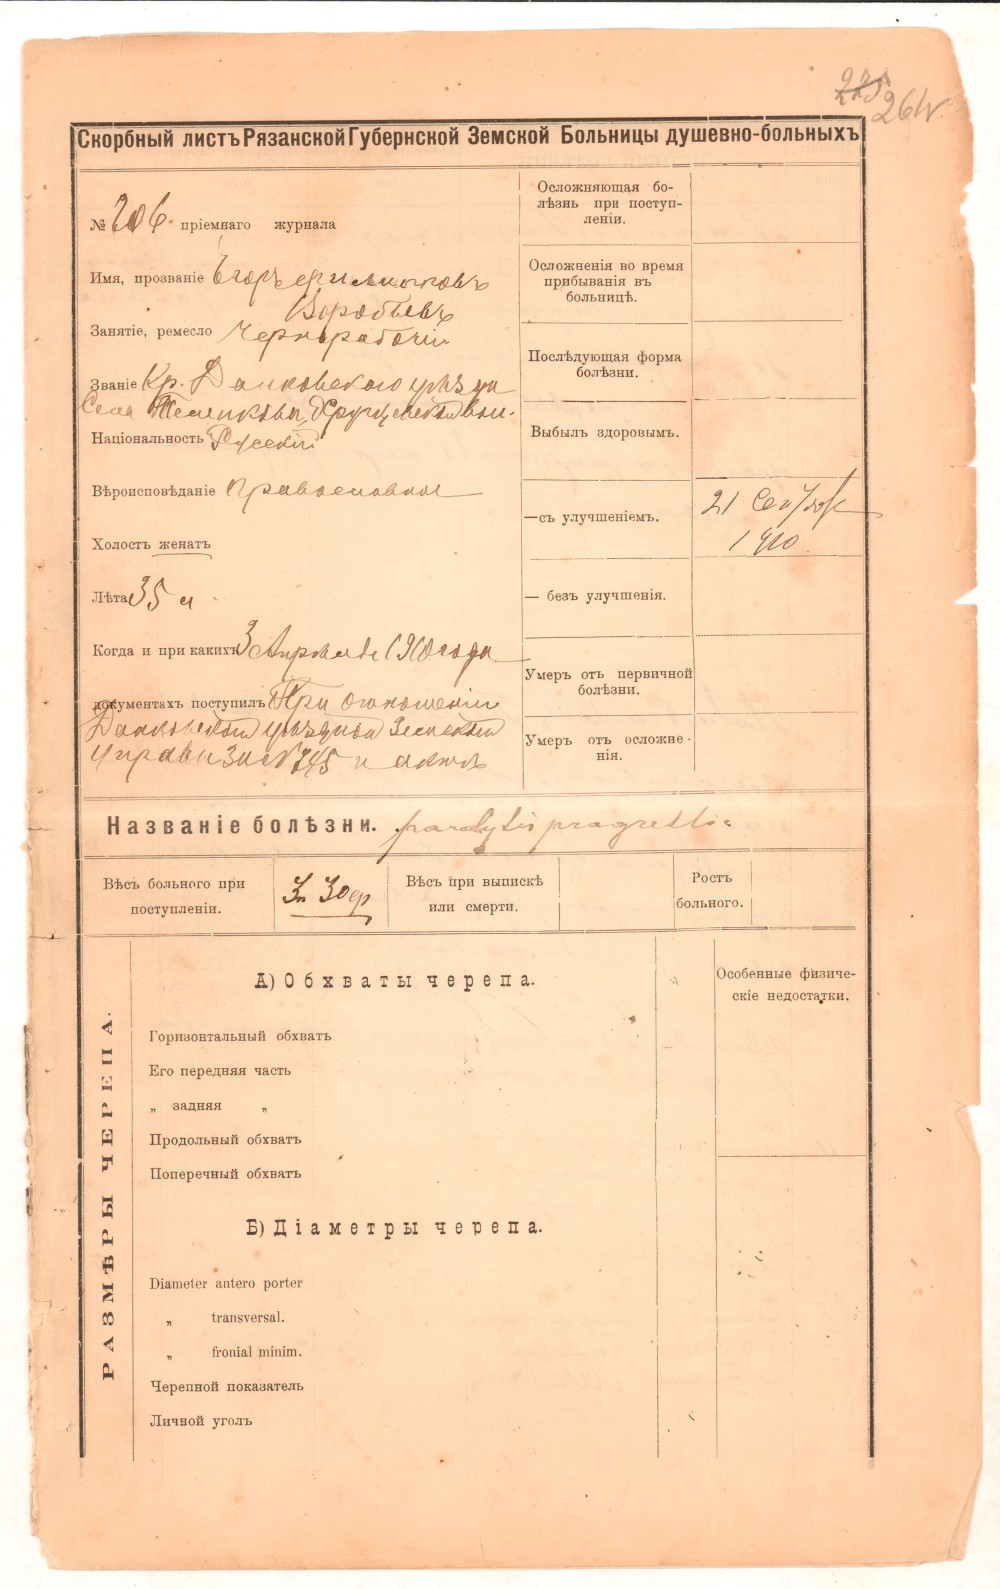 225 264.
Скорбный листъ Рязанской Губернской Земской Больницы душевно-больныхъ
№ 206 пріемнаго журнала
Имя, прозваніе Егоръ Филипповъ
Воробьевъ
Занятіе, ремесло Чернорабочій
Званіе Кр. Данковскаго уѣзда
Села
Національность Русскій
Вѣроисповѣданіе Православное
Холостъ женатъ
Лѣта 35 л
Когда и при какихъ 3 Апрѣля 1910 года
документахъ поступилъ При отношеніи
Данковской уѣздной Земской
Управы за № 745 и актъ
Осложняющая бо-
лѣзнь при поступ-
леніи.
Осложненія во время
прибыванія въ
больницѣ.
Послѣдующая форма
болѣзни.
Выбылъ здоровымъ.
—съ улучшеніемъ. 21 Сентября
1910
— безъ улучшенія.
Умеръ отъ первичной
болѣзни.
Умеръ отъ осложне-
нія.
Названіе болѣзни. paralysis progressiva
Вѣсъ больного при
поступленіи.
3п 30ф
Вѣсъ при выпискѣ
или смерти.
Ростъ
больного.
РАЗМѢРЫ ЧЕРЕПА.
А) Обхваты черепа.
Особенные физиче-
скіе недостатки.
Горизонтальный обхватъ
Его передняя часть
„ задняя „
Продольный обхватъ
Поперечный обхватъ
Б) Діаметры черепа.
Diameter antero porter
„ transversal.
„ fronial minim.
Черепной показатель
Личной уголъ